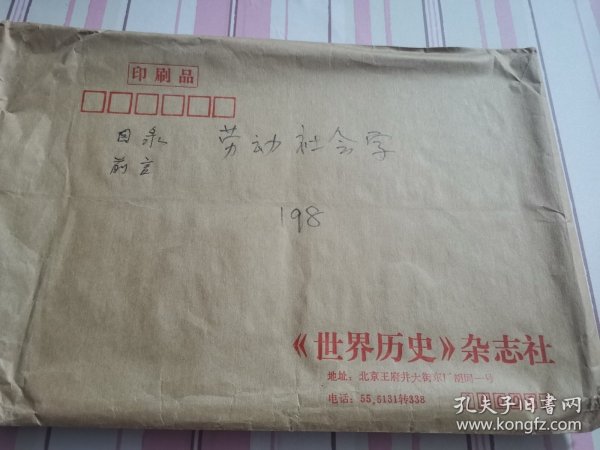 印刷品
目录 劳动社会学
前言
198
《世界历史》杂志社
地址：北京王府井大街东厂胡同一号
电话：55.5131转338
孔夫子旧书网
www.kongfz.com